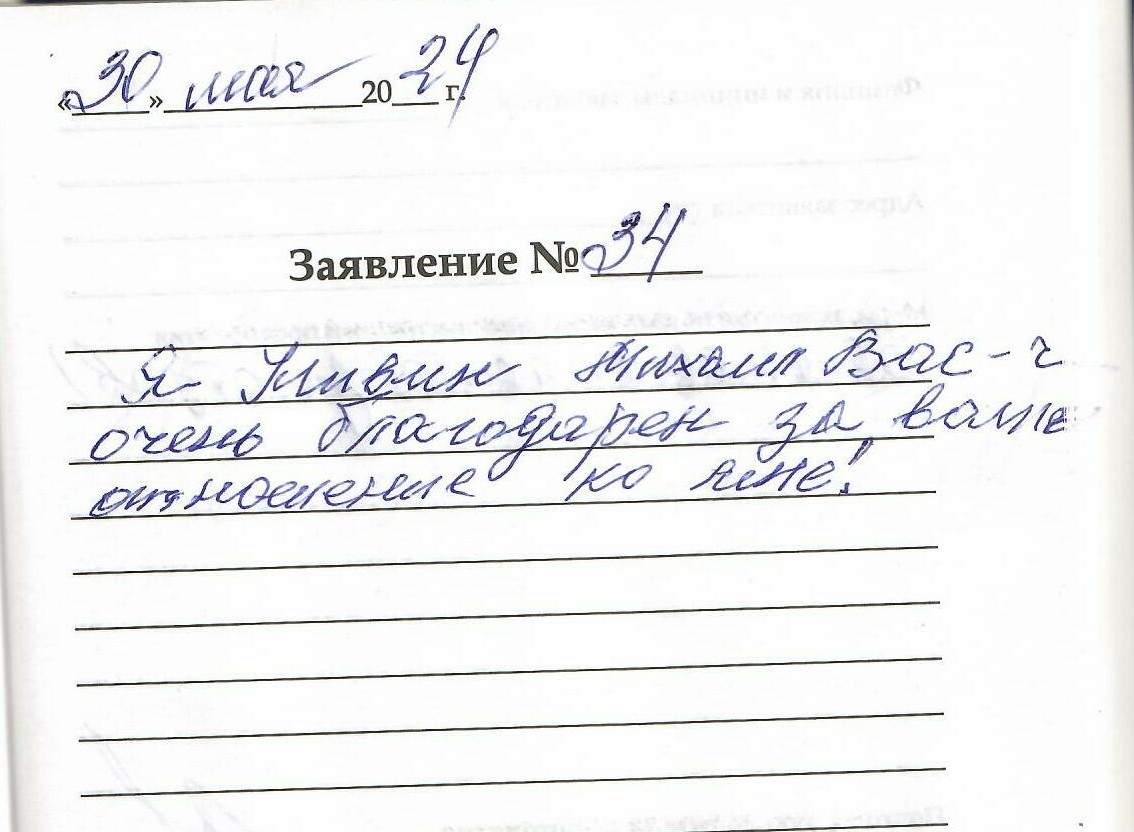 «30» мая 2024 г.
Заявление № 34
Я Михаил Вас-ч
очень благодарен за ваше
отношение ко мне!